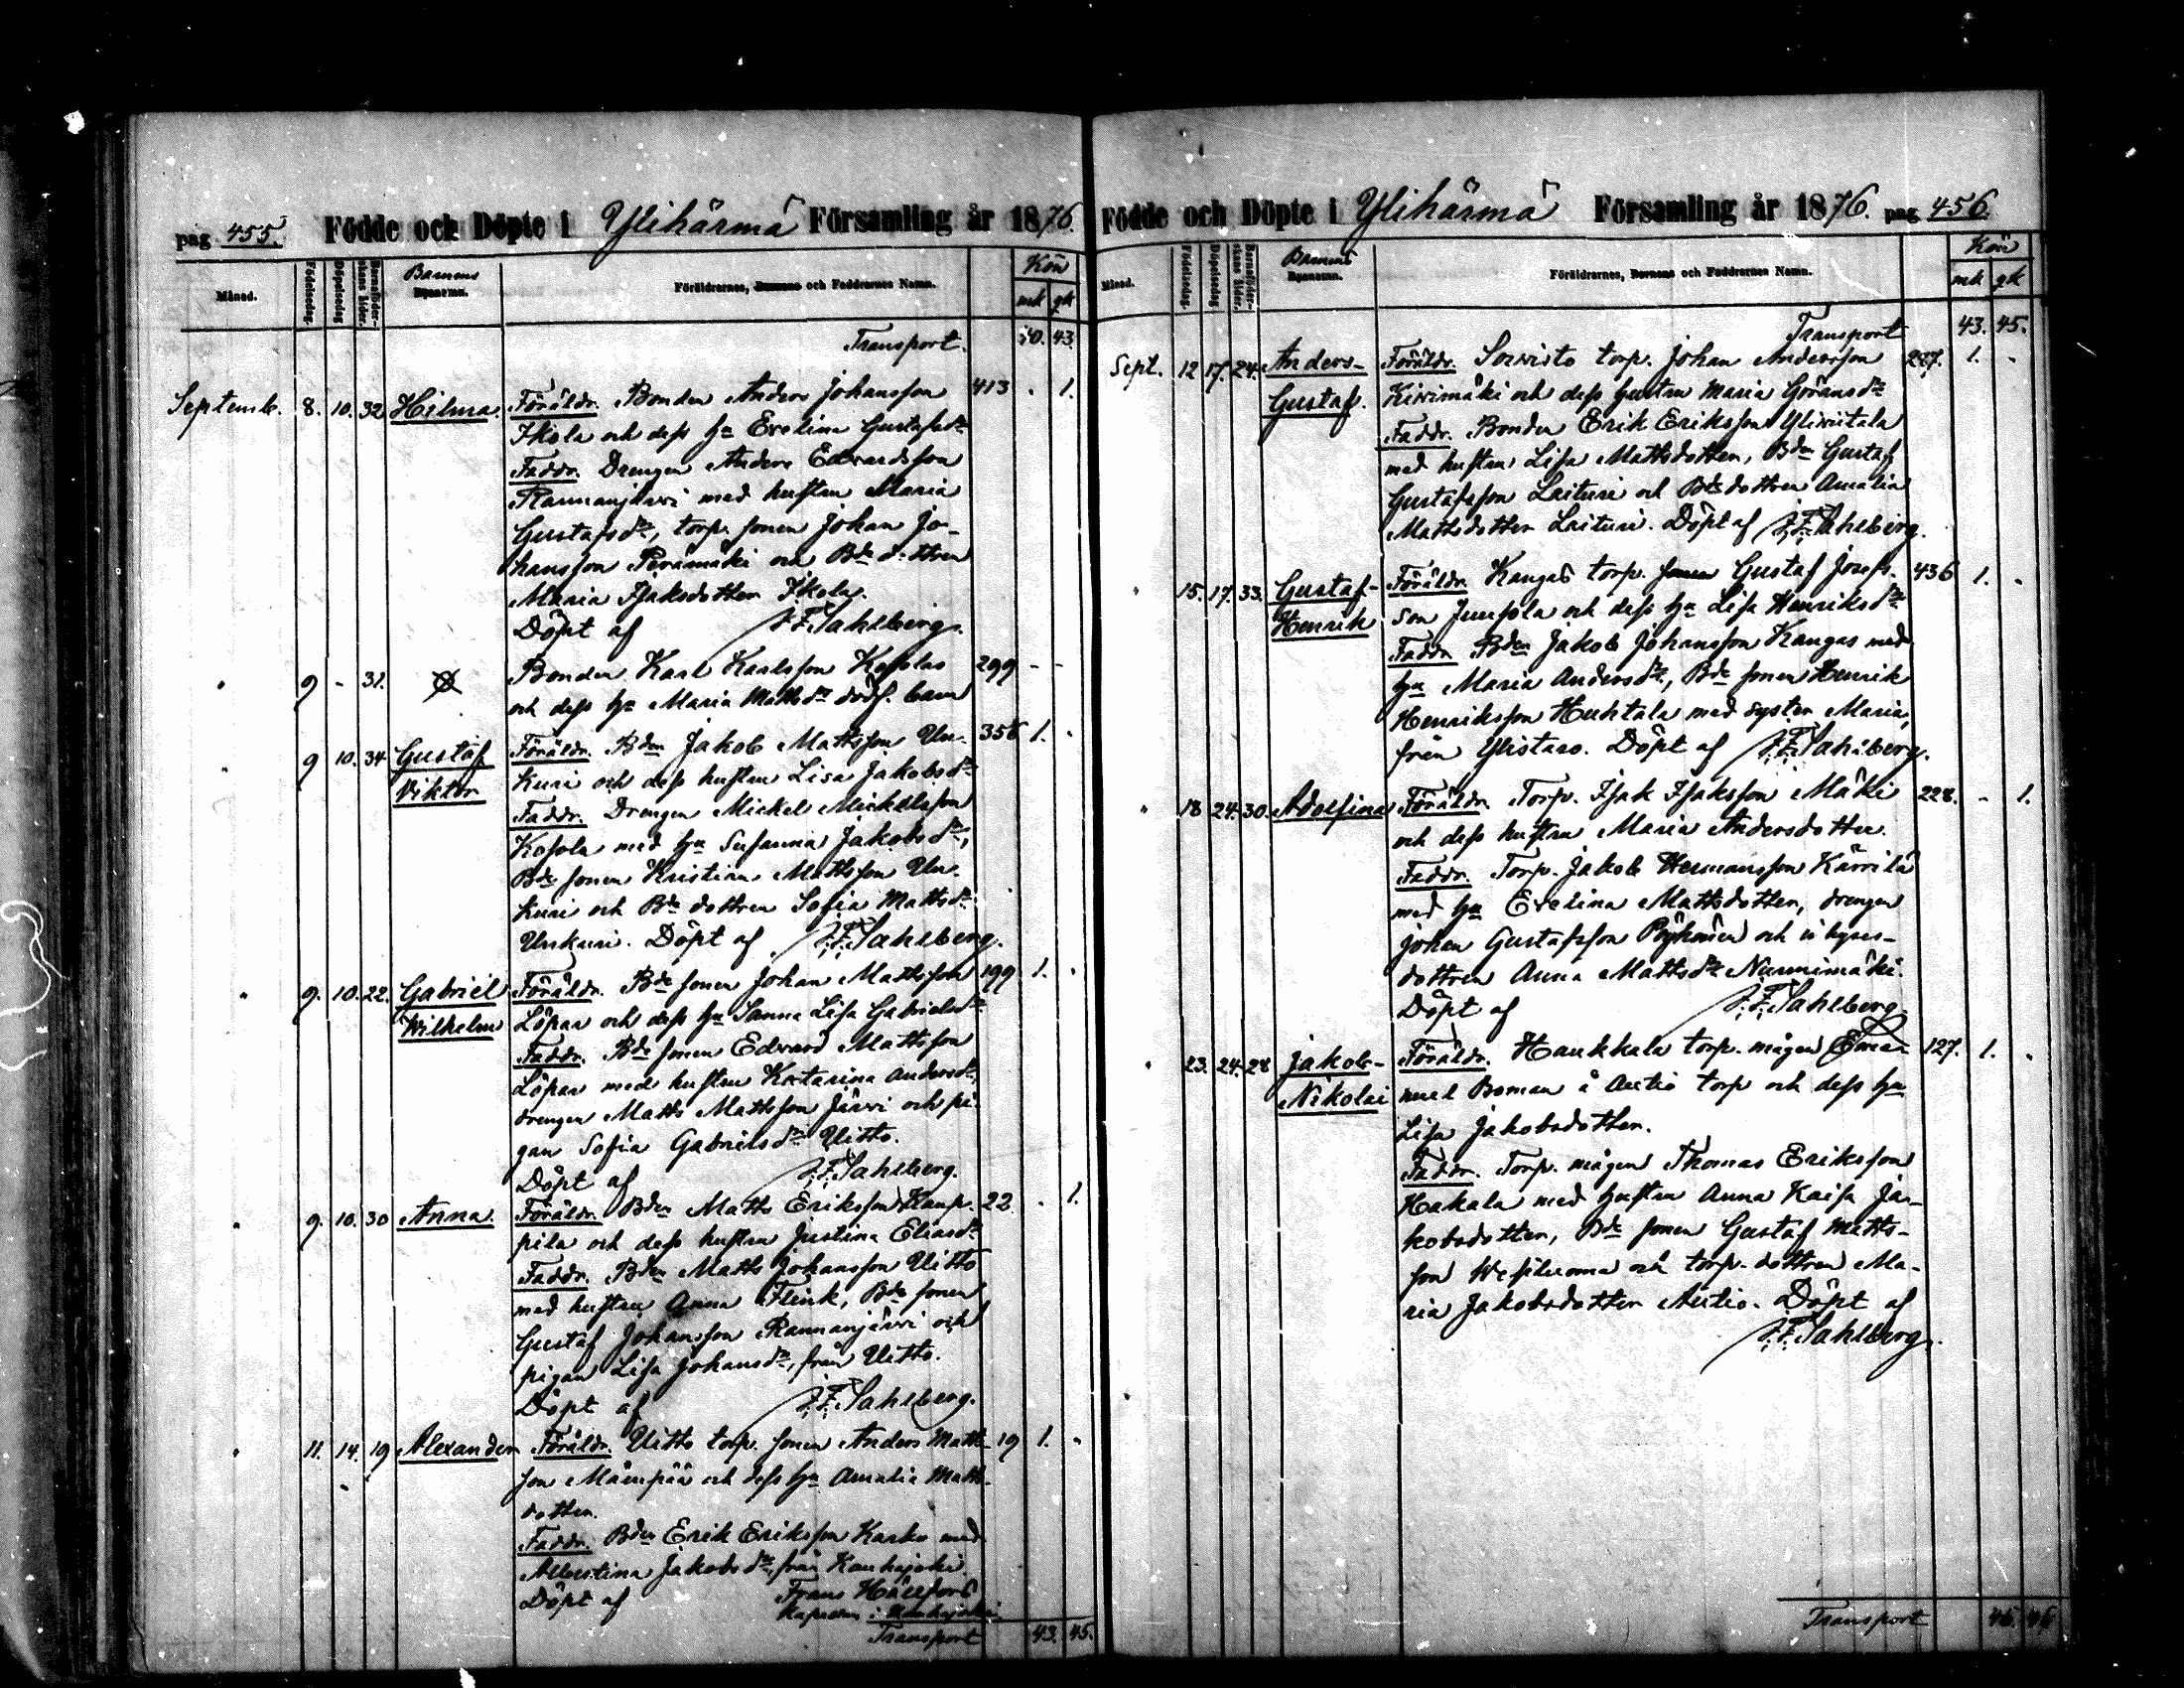 pag 455. Födde och Döpte i Ylihärmä Församling år 1876.
Månad. Födelsedag. Döpelsedag Barnaföderskans ålder. Barnens Föräldrarnes, Barnens och Faddrarnes Namn. Kön
mk qk
Transport. 40. 43.
Septemb. 8. 10. 32 Hilma. Föräldr. Bonden Anders Johansson 413 . 1.
Ikola och dess hu Evelina Gustafsdr
Faddr. Drengen Anders Edvardsson
Rannanjärvi med hustru Maria
Gustafsdr, torp. sonen Johan Jo-
hansson Perämäki och Bde dottren
Maria Isaksdotter Ikola.
Döpt af J.F. Sahlberg.
" 9 - 31. Bonden Karl Karlsson Kosolas 299 - -
och dess hu Maria Mattsdr dödf. barn
" 9 10. 34 Gustaf Föräldr. Bden Jakob Mattsson Un- 356 1. .
Viktor kuri och dess hustru Lisa Jakobsdr
Faddr. Drengen Mickel Mickelsson
Kosola med hu Susanna Jakobsdr,
Bde sonen Kristian Mattsson Un-
kuri och Bde dottren Sofia Mattsdr
Unkuri. Döpt af J.F. Sahlberg.
" 9. 10. 22. Gabriel Föräldr. Bde sonen Johan Mattsson 199 1. .
Wilhelm Löpas och dess hu Sanna Lisa Gabrielsdr
Faddr. Bde sonen Edvard Mattsson
Löpas med hustru Katarina Andersdr,
drengen Matts Mattsson Järvi och pi-
gan Sofia Gabrielsdr Uitto.
Döpt af J.F. Sahlberg.
" 9. 10. 30 Anna. Föräldr. Bden Matts Eriksson Kamp- 22 . 1.
pila och dess hustru Justina Eliasdr
Faddr. Bden Matts Johansson Uitto
med hustru Anna Flink, Bde sonen
Gustaf Johansson Rannanjärvi och
pigan Lisa Johansdr, från Uitto.
Döpt af J.F. Sahlberg.
" 11. 14. 19 Alexander Föräldr. Uitto torp. sonen Anders Matts- 19 1. .
son Mäenpää och dess hu Amalia Matts-
dotter.
Faddr. Bden Erik Eriksson Karko med
Albertina Jakobsdr, från Kauhajoki.
Döpt af Frans Hällfors
Kapellan i
Transport 43. 45.
Födde och Döpte i Ylihärmä Församling år 1876. pag 456.
Månad. Födelsedag. Döpelsedag Barnaföderskans ålder. Barnens Föräldrarnes, Barnens och Faddrarnes Namn. Kön
mk qk
Transport 43. 45.
Sept. 12 17. 24. Anders- Föräldr. Sorvisto torp. Johan Andersson 227. 1. .
Gustaf. Kivimäki och dess hustru Maria Göransdr
Faddr. Bonden Erik Eriksson Yliviitala
med hustru Lisa Mattsdotter, Bden Gustaf
Gustafsson Laituri och Bde dottren Amalia
Mattsdotter Laituri. Döpt af J.F. Sahlberg.
" 15. 17. 33. Gustaf- Föräldr. Kangas torp. sonen Gustaf Josefs- 436 1. .
Henrik son Junsola och dess hu Lisa Henriksdr
Faddr. Bden Jakob Johansson Kangas med
hu Maria Andersdr, Bde sonen Henrik
Henriksson Huhtala med syster Maria,
från Ylistaro. Döpt af J.F. Sahlberg.
" 18 24. 30. Adolfina Föräldr. Torp. Isak Isaksson Mäki 228. - 1.
och dess hustru Maria Andersdotter.
Faddr. Torp. Jakob Hermansson Kärrilä
med hu Evelina Mattsdotter, drengen
Johan Gustafsson Pöyhönen och inhyses-
dottren Anna Mattsdr Nurmimäki.
Döpt af J.F. Sahlberg.
" 23. 24. 28 Jakob- Föräldr. Haukkala torp. mågen Ema- 127. 1. .
Nikolai nuel Boman å Autio torp och dess hu
Lisa Jakobsdotter.
Faddr. Torp. mågen Thomas Eriksson
Hakala med hustru Anna Kaisa Ja-
kobsdotter, Bde sonen Gustaf Matts-
son och torp. dottren Ma-
ria Jakobsdotter Autio. Döpt af
J.F. Sahlberg.
Transport 46. 46